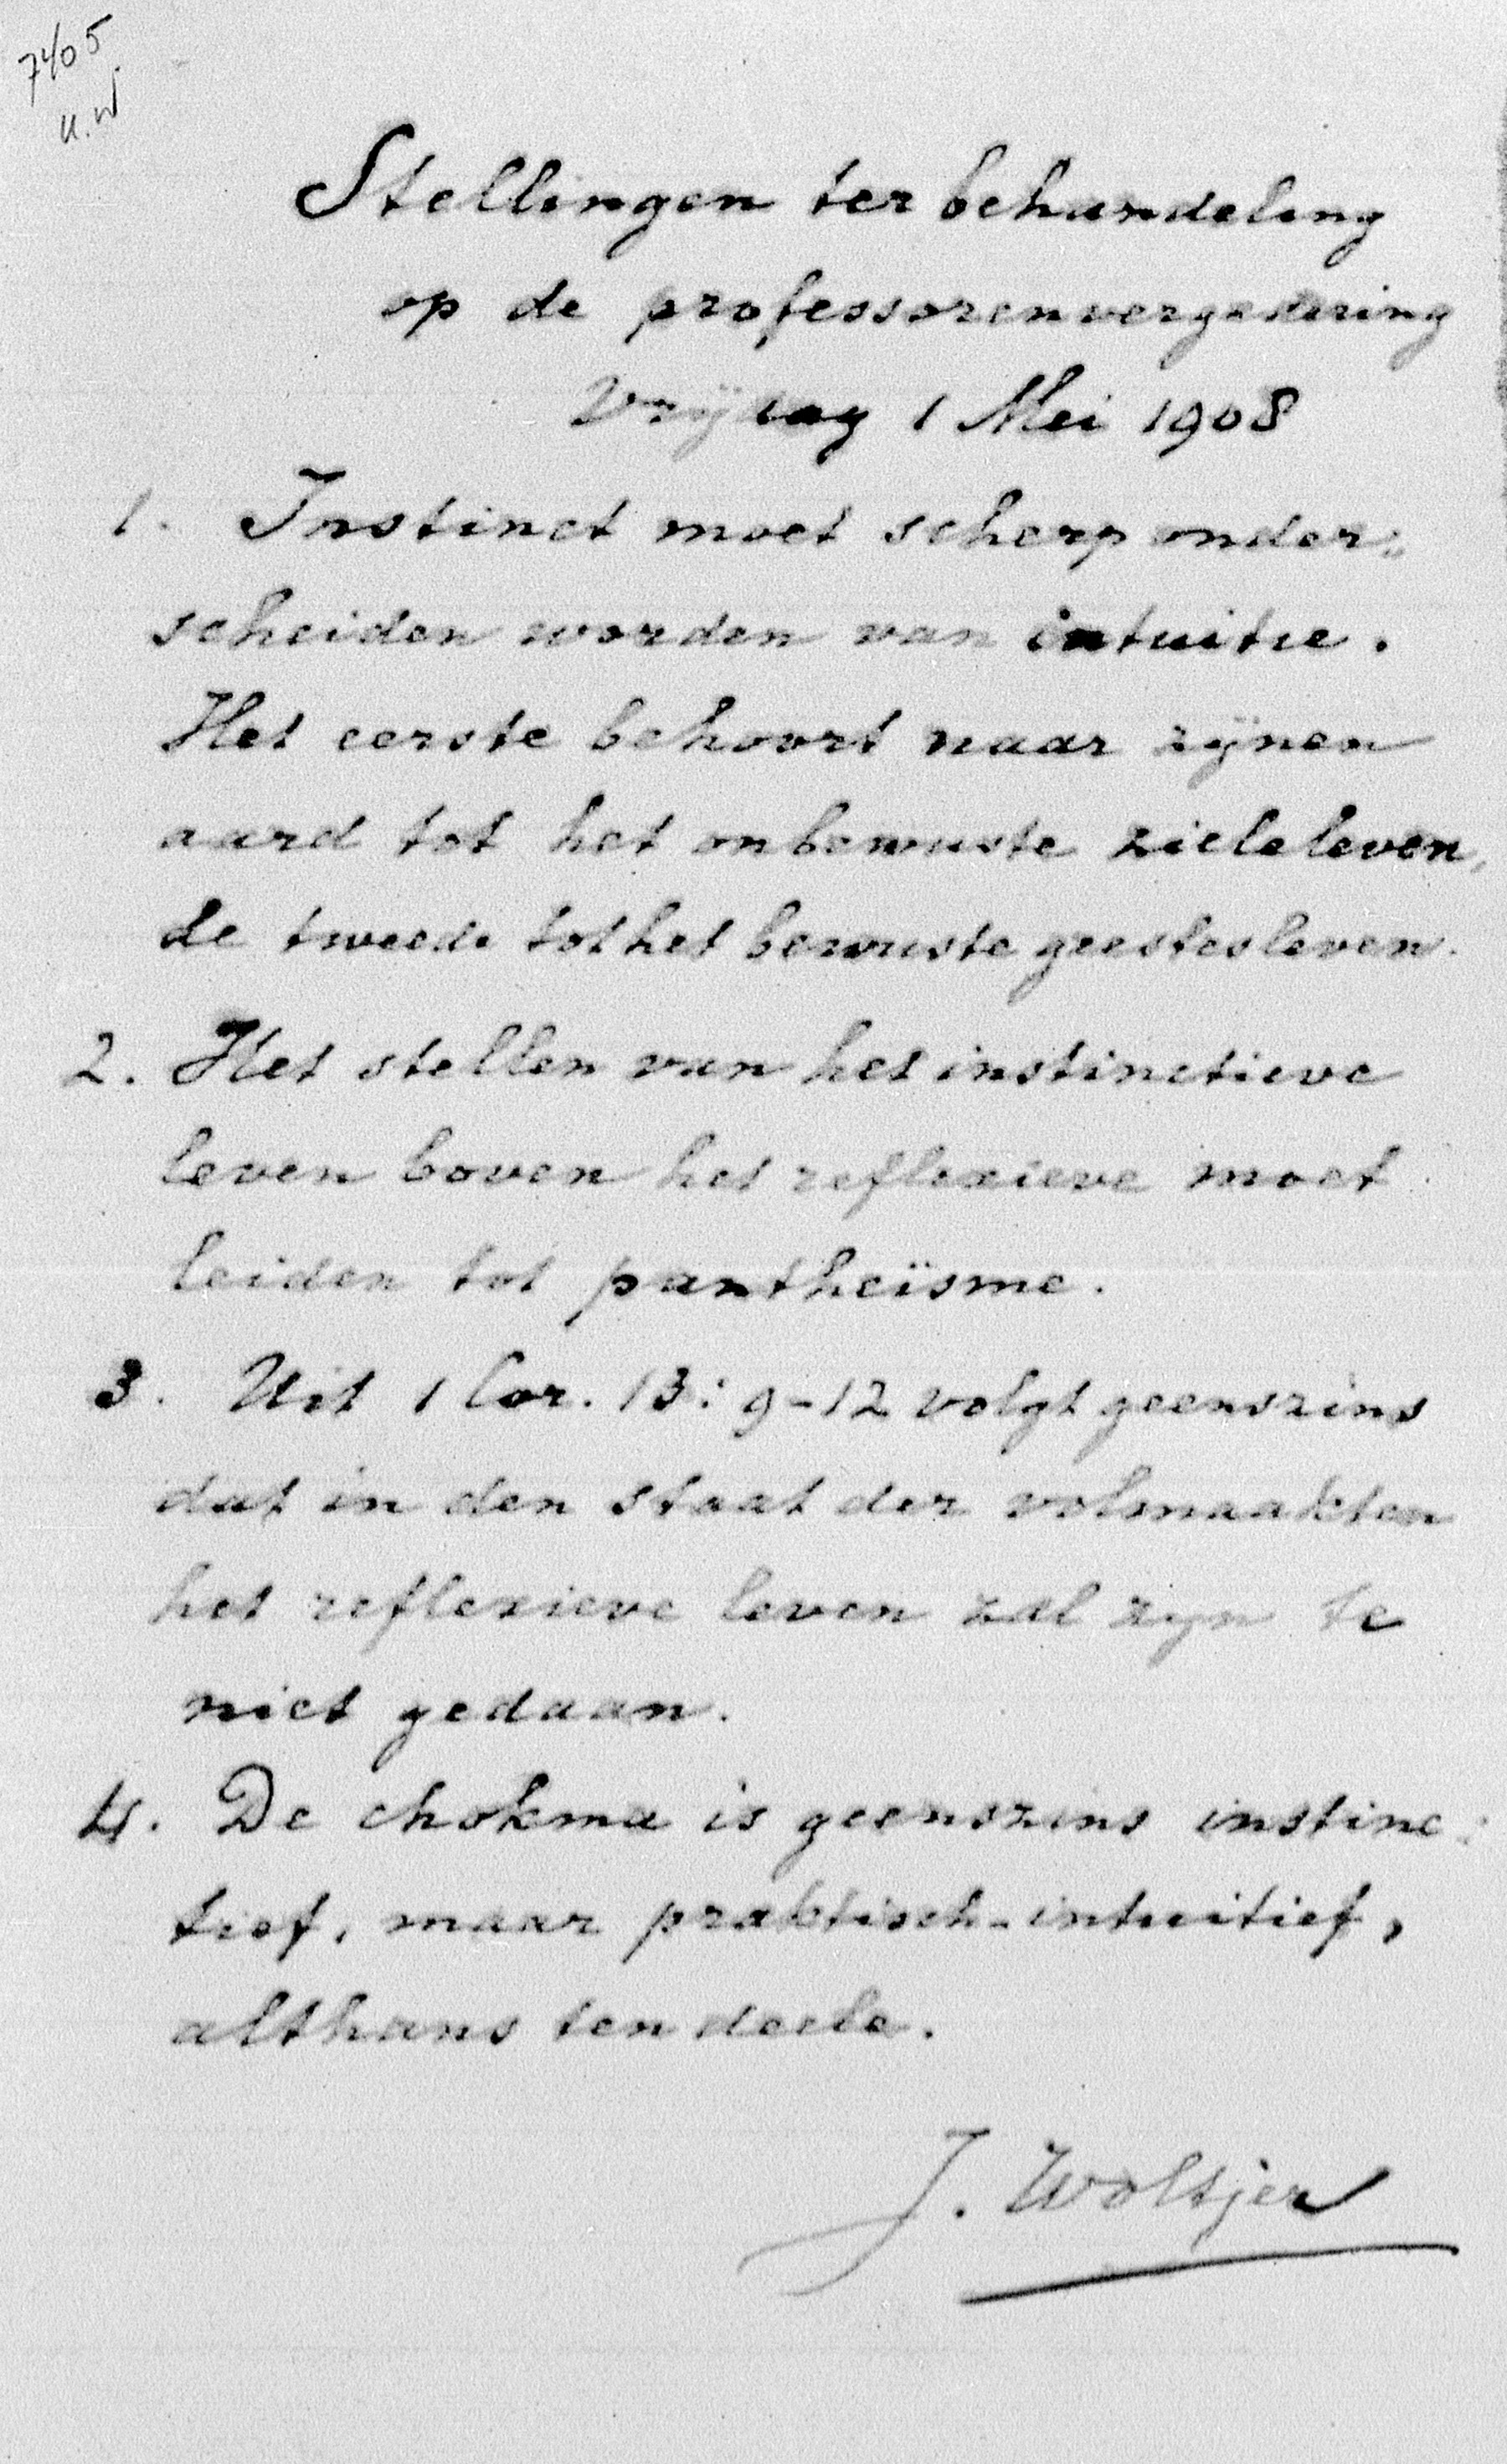 7405
U.W
Stellingen ter behandeling
op de professorenvergadering
Vrijdag 1 Mei 1908
1. Instinct moet scherp onder:
scheiden worden van intuitie.
Het eerste behoort naar zijnen
aard tot het onbewuste zieleleven,
de tweede tot het bewuste geestesleven.
2. Het stellen van het instinctieve
leven boven het reflexieve moet
leiden tot pantheïsme.
3. Uit 1 Cor. 13: 9-12 volgt geenszins
dat in den staat der volmaakten
het reflexieve leven zal zijn te
niet gedaan.
4. De chokma is geenszins instinc:
tief, maar praktisch-intuitief,
althans ten deele.
J. Woltjer